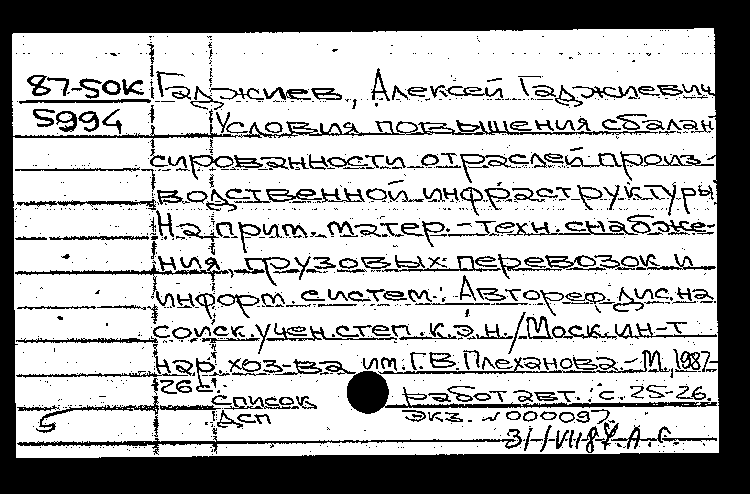 87-50К Гаджиев, Алексей Гаджиевич
5994 Условия повышения сбалан
сированности отраслей произ-
водственной инфраструктуры
На прим. матер.-техн. снабже-
ния, грузовых перевозок и
информ. систем: Автореф. дис. на
соиск. учен. степ. к.э.н./Моск. ин-т
нар. хоз-ва им. Г.В. Плеханова.-М., 1987-
26с. список работ авт.: с. 25-26.
5 ДСП Экз. N000097
А.С.